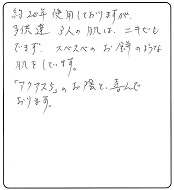 約20年使用しておりますが、
子供達 3人の肌は、ニキビも
でず、スベスベの お餅のような
肌をしています。
「アクアス5」の お陰と、喜んで
おります。